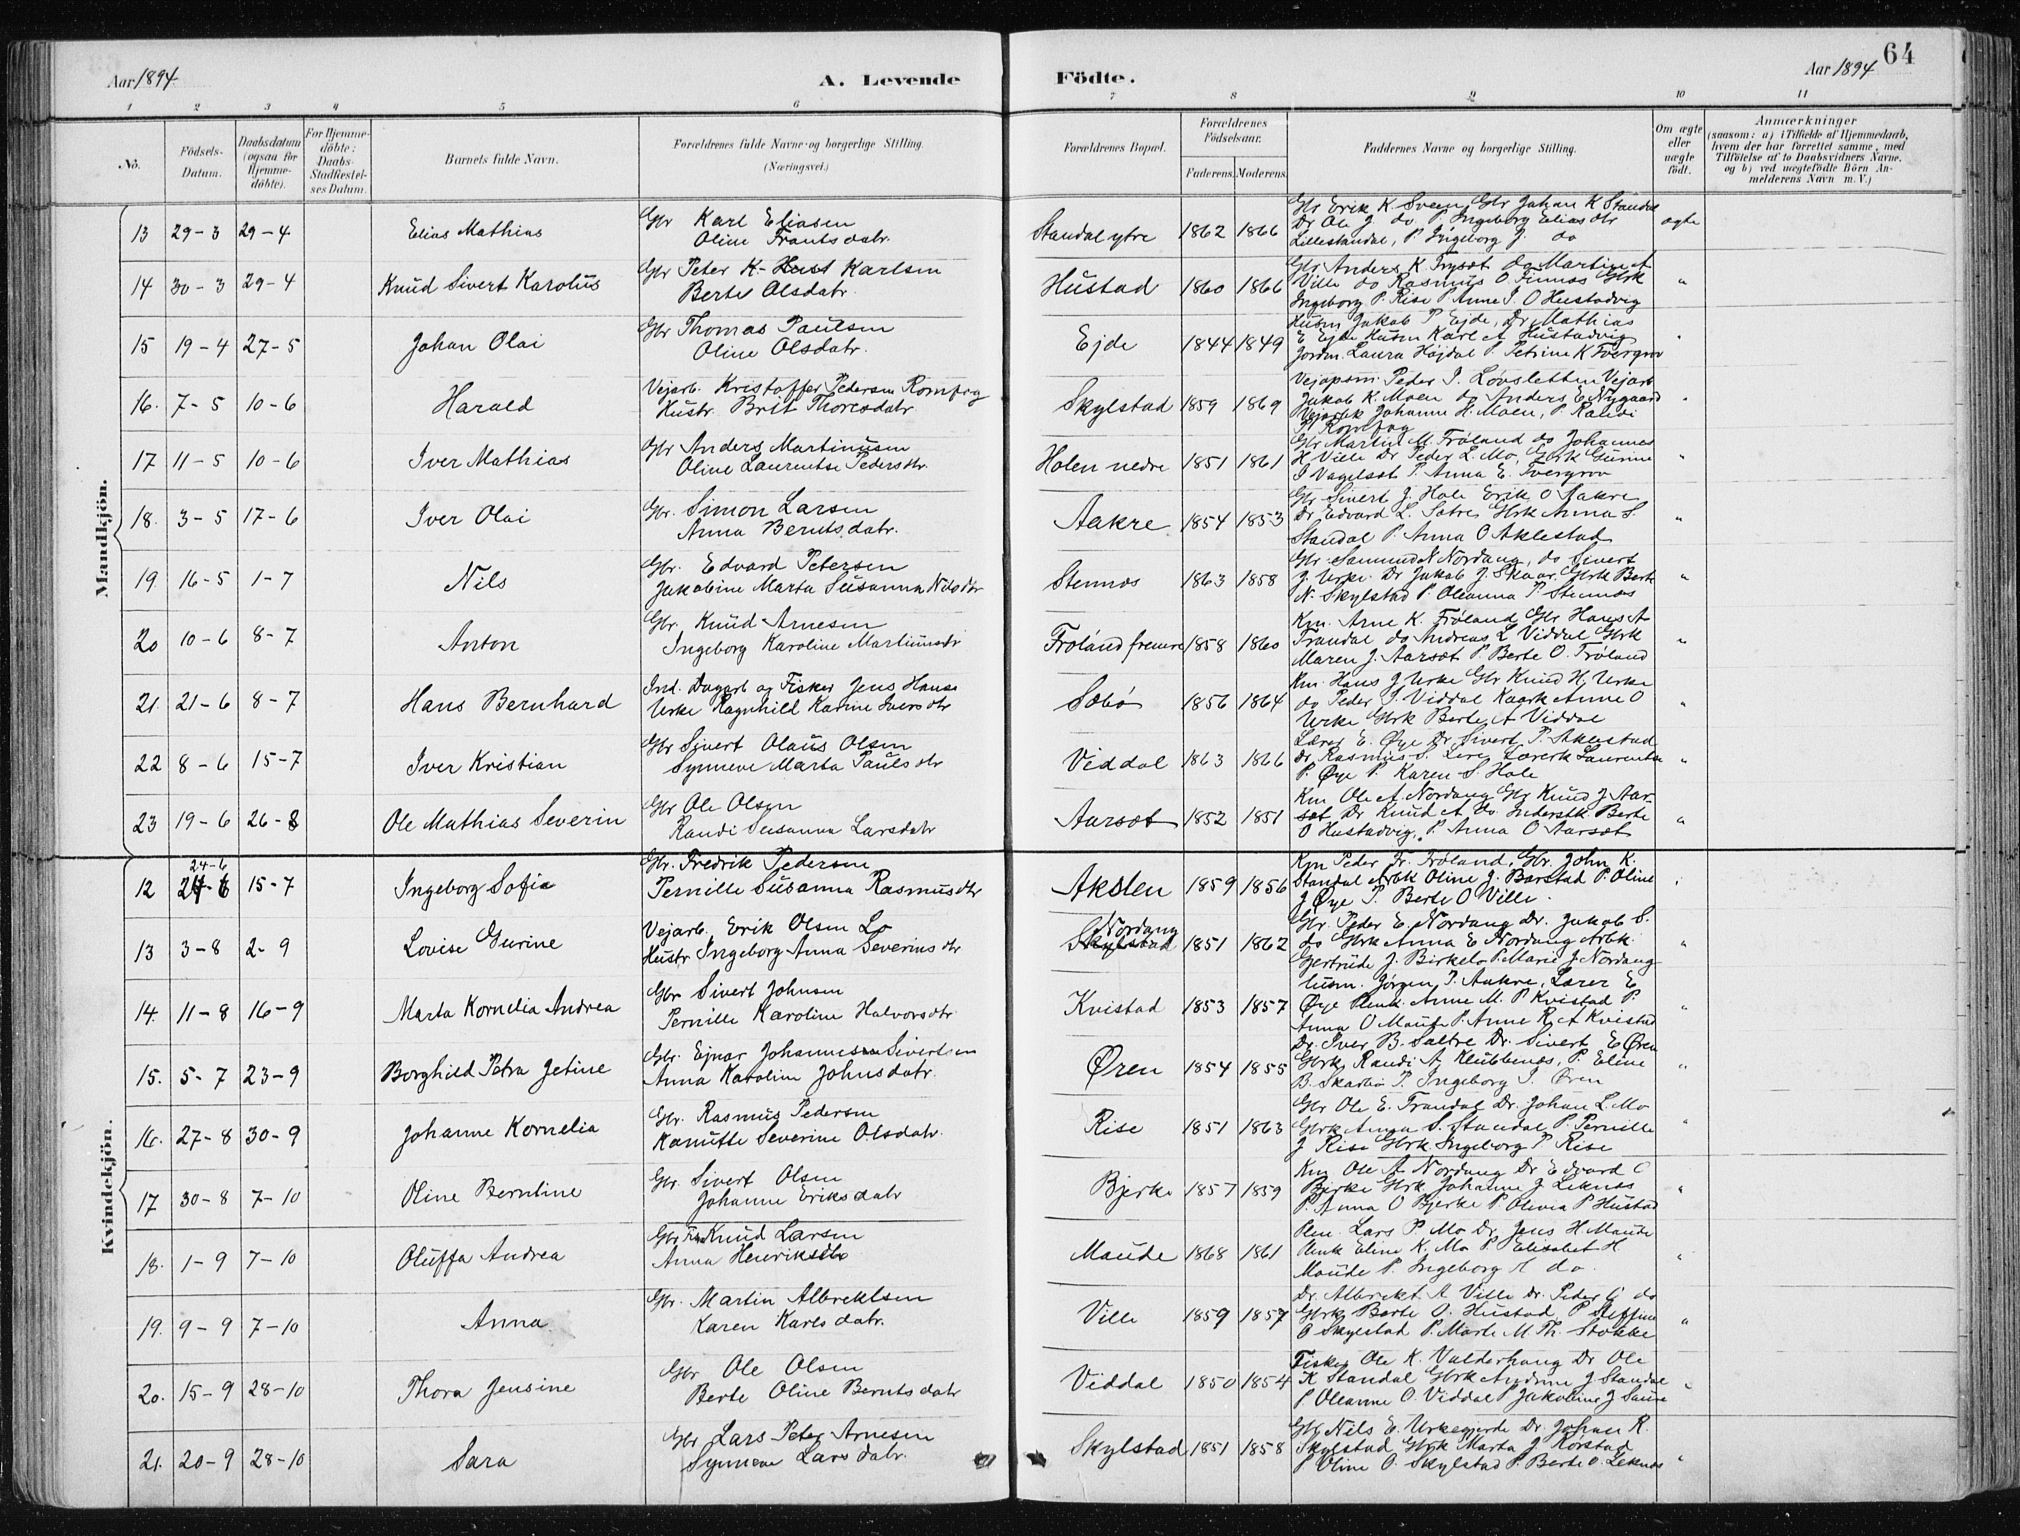 64
Aar 1894.
A. Levende
Födte.
Aar 1894
1 2 3 4 5 6 7 8 9 10 11
No.
Födsels-Datum.
Daabsdatum (ogsaa for Hjemme-döbte).
For Hjemme-döbte: Daabs-Stadfæstel-ses Datum.
Barnets fulde Navn.
Forældrenes fulde Navne og borgerlige Stilling. (Næringsvei.)
Forældrenes Bopæl.
Forældrenes Födselsaar.
Faderens. Moderens.
Faddernes Navne og borgerlige Stilling.
Om ægte eller uægte födt.
Anmærkninger
(saasom: a) i Tilfælde af Hjemmedaab, hvem der har forrettet samme, med Tilföielse af to Daabsvidners Navne, og b) ved uægtefödte Börn An-melderens Navn m. V.)
Mandkjön.
13 29-3 29-4 Elias Mathias
Gbr Karl Eliasen
Oline Frantsdatr.
Standal ytre 1862 1866
Gbr Erik K. Sveen Gbr Johan K Standal
Dr Ole J do P. Ingeborg Eliasdtr
Lillestandal, P. Ingeborg J. do
ægte
14 30-3 29-4 Knud Sivert Karolus
Gbr Peter K. Karlsen
Berte Olsdatr.
Hustad 1860 1866
Ville do Rasmus O Finnes Gbrk
Ingeborg P. Rise P Anne I. O Hustadvig
"
15 19-4 27-5 Johan Olai
Gbr Thomas Paulsen
Oline Olsdatr.
Ejde 1844 1849
Husm Jakob P Ejde, Dr Mathias
E Ejde Husm Karl A Hustadvig
Jordm. Laura Højdal P. Petrine K Tvergrov
"
16. 7-5 10-6 Harald
Vejarb. Kristoffer Pedersen Romfog
Hustr. Brit Thoresdatr
Skylstad 1859 1869
Vejopsm. Peder I. Løvsletten Vejarb
Jakob K. Moen do Anders E Nygaard
Vejarbk Johanne H. Moen, P. Randi
Romfog
"
17 11-5 10-6 Iver Mathias
Gbr Anders Martinusen
Oline Laurentse Pedersdtr.
Holen nedre 1851 1861
Gbr Martin M. Frøland do Johannes
H Ville Dr Peder L. Mo, Gbrk Gurine
I Vagelsæt P. Anna E. Tvergrov
"
18. 3-5 17-6 Iver Olai
Gbr. Simon Larsen
Anna Berntsdatr.
Aakre 1854 1853
Gbr Sivert J. Hole Erik O Aakre
Dr Edvard L. Sætre Gbrk Anna S.
Standal P. Anna O Aklestad
"
19. 16-5 1-7 Nils
Gbr. Edvard Petersen
Jakobine Marta Susanna Nilsdtr
Stennes 1863 1858
Gbr. Samund N Nordang, do Sivert
J. Urke. Dr Jakob J. Skaar. Gbrk Berte
N. Skylstad P. Oleanna P Stennes
"
20 10-6 8-7 Anton
Gbr. Knud Arnesen
Ingeborg Karoline Martinusdtr
Frøland fremre 1858 1860
Km. Arne K. Frøland Gbr Hans A
Trandal do Andreas L Viddal Gbrk
Maren J. Aarsæt P. Berte O. Frøland
"
21. 21-6 8-7 Hans Bernhard
Ind. Dagarb og Fisker Jens Hanse
Urke Ragnhild Karine Iversdtr
Sæbø 1856 1864
Km. Hans J Urke Gbr Knud H, Urke
do Peder J. Viddal Kaark Anne O
Urke Gbrk Berte A Viddal
"
22 8-6 15-7 Iver Kristian
Gbr Sivert Olaus Olsen
Synneve Marta Paulsdtr
Viddal 1863 1866
Lærer E. Øye Dr Sivert P. Aklestad
Dr. Rasmus S. Lererk Laurentse
P. Øye P. Karen S. Hole
"
23 19-6 26-8 Ole Mathias Severin
Gbr Ole Olsen
Randi Susanna Larsdatr
Aarsæt 1852 1851
Km Ole A. Nordang Gbr Knud J Aar-
sæt Dr Knud A do. Inderstk Berte
O Hustadvig, P Anna O Aarsæt
"
Kvindekjön.
12 24-6 15-7 Ingeborg Sofie
Gbr. Fredrik Pedersen
Pernille Susanna Rasmusdtr
Akslen 1859 1856
Km Peder Fr. Frøland, Gbr. John K.
Standal Arbk Oline J. Barstad P. Oline
J Øye P. Berte O Ville.
"
13 3-8 2-9 Lovise Gurine
Vejarb. Erik Olsen Lo
Hustr Ingeborg Anna Severinsdtr
Nordang
Skylstad 1851 1862
Gbr. Peder E. Nordang Dr. Jakob S.
do Gbrk Anna E Nordang Arbk.
Gertrude J. Birkelo P. Marie J. Nordang
"
14. 11-8 16-9 Marta Kornelia Andrea
Gbr Sivert Johnsen
Pernille Karoline Halvorsdtr
Kvistad 1853 1857
Husm. Jørgen T. Aakre, Lærer E
Øye Anne M. P Kvistad P.
Anna O Maude P. Anne R. A Kvistad
"
15. 5-7 23-9 Borghild Petra Jetine
Gbr. Ejnar Johannes Sivertsen
Anna Karoline Johnsdatr.
Øren 1854 1855
Dr. Iver B. Sætre Dr. Sivert E Øren
Gbrk Randi A Klubbenes, P. Eline
B. Skarbø P. Ingeborg I. Øren
"
16. 27-8 30-9 Johanne Kornelia
Gbr. Rasmus Pedersen
Kanutte Severine Olsdatr.
Rise 1851 1863
Gbr Ole E. Trandal Dr. Johan L. Mo
Gbrk Anna S. Standal P Pernille
J Rise Gbrk Ingeborg P Rise
"
17 30-8 7-10 Oline Berntine
Gbr. Sivert Olsen
Johanne Eriksdatr
Bjerke 1857 1859
Km Ole A Nordang Dr Edvard C
Bjerke Gbrk Johanne J Leknes
P. Anna O Bjerke P. Olivia P Hustad
"
18. 1-9 7-10 Oluffa Andrea
Gbr Knud Larsen
Anna Henriksdtr
Maude 1868 1861
Lars P. Mo Dr. Jens H Maude
Eline K. Mo P. Elisabet H.
Maude P. Ingeborg A do.
"
19. 9-9 7-10 Anna
Gbr. Martin Albrektsen
Karen Karlsdatr.
Ville 1859 1857
Dr. Albrekt A Ville Dr. Peder C do
Gbrk Berte O. Hustad, P Steffine
O Skylstad P. Marte M. Th. Stokke
"
20. 15-9 28-10 Thora Jensine
Gbr Ole Olsen
Berte Oline Berntsdatr
Viddal 1850 1854
Fisker Ole K. Valderhaug Dr Ole
K Standal Gbrk Andrine J Standal
P Oleanne O. Viddal P Jakobine J Saure
"
21. 20-9 28-10 Sara
Gbr Lars Peter Arnesen
Synneve Larsdatr.
Skylstad 1851 1858
Gbr Nils E. Urkegjerde Dr. Johan R.
Skylstad Gbrk Marta J Korstad
P Oline O. Skylstad P. Berte O. Leknes
"